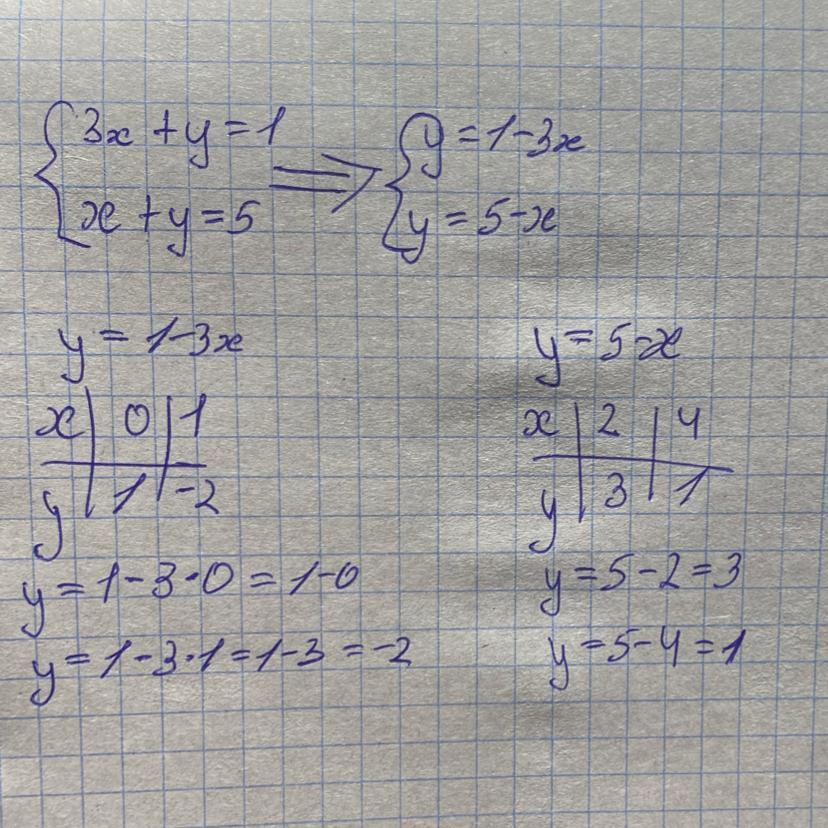 {3x + y = 1 ⟹ {y = 1-3x
x + y = 5 y = 5-x
y = 1-3x
x | 0 | 1
y | 1 | -2
y = 1-3·0 = 1-0
y = 1-3·1 = 1-3 = -2
y = 5-x
x | 2 | 4
y | 3 | 1
y = 5-2 = 3
y = 5-4 = 1